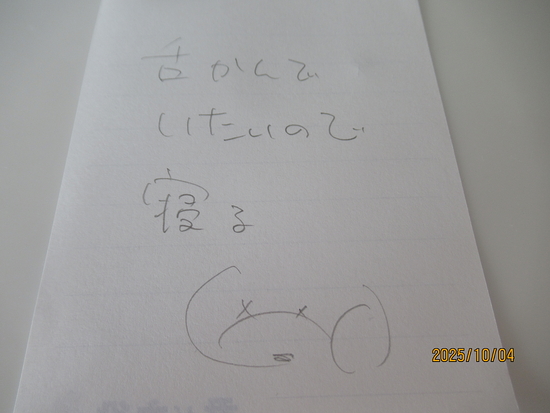 舌かんで
いたいので
寝る
2025/10/04